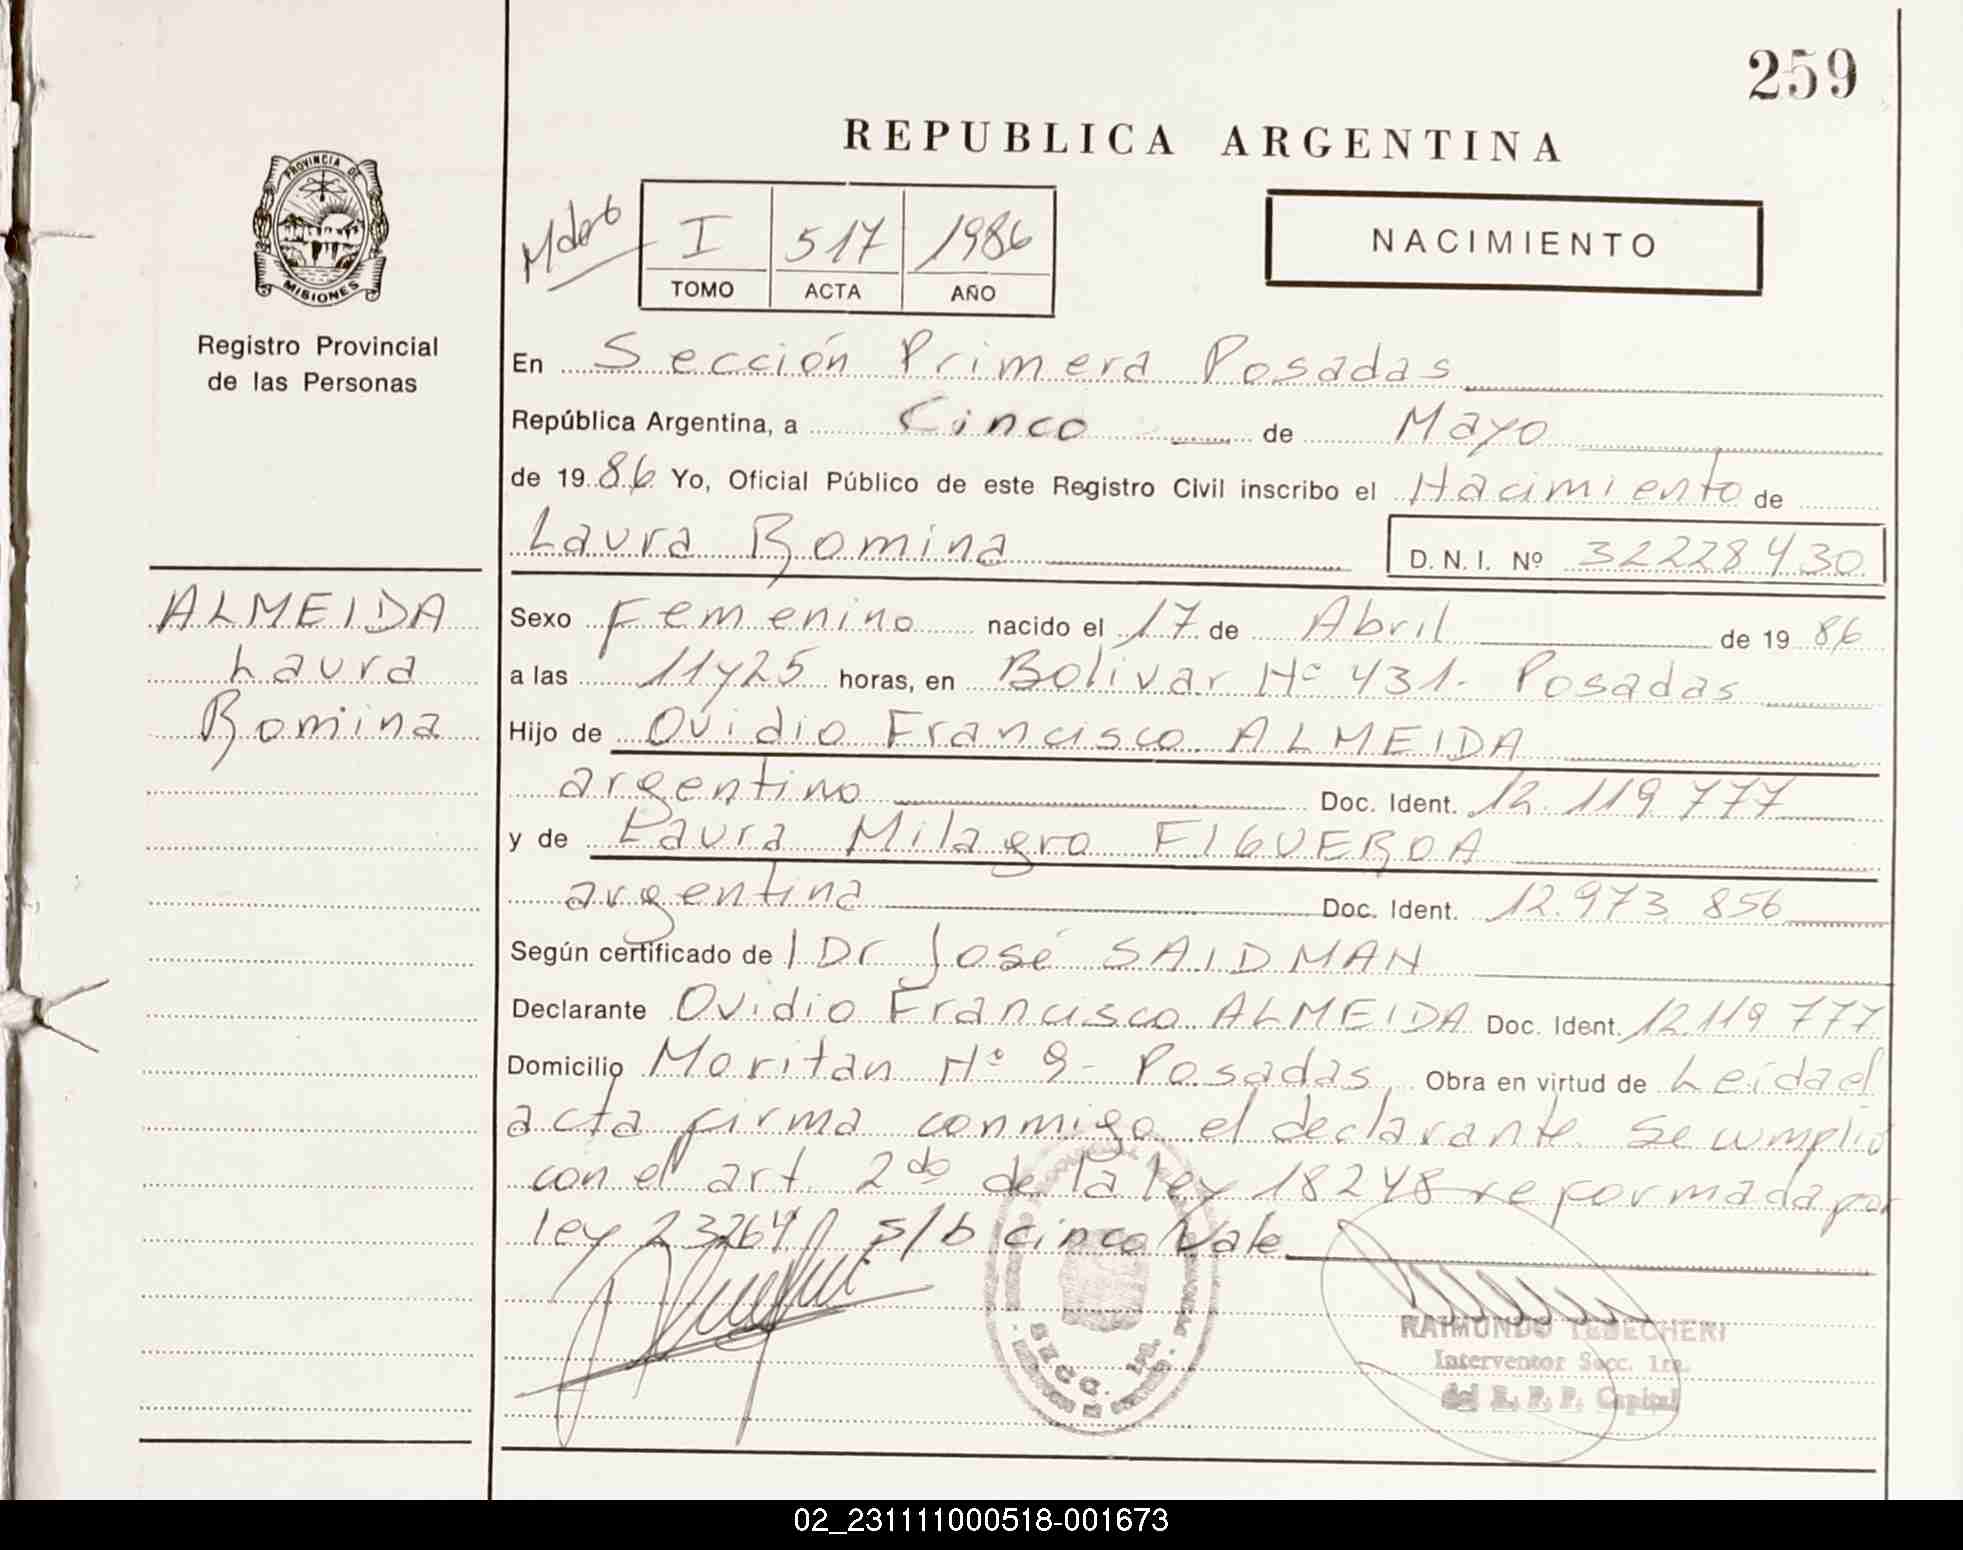 259
REPUBLICA ARGENTINA
PROVINCIA DE
MISIONES
Registro Provincial
de las Personas
I 517 1986
TOMO ACTA AÑO
NACIMIENTO
En Sección Primera Posadas
República Argentina, a Cinco de Mayo
de 1986 Yo, Oficial Público de este Registro Civil inscribo el Nacimiento de
Laura Romina D. N. I. Nº 32228430
ALMEIDA
Laura
Romina
Sexo Femenino nacido el 17 de Abril de 1986
a las 11y25 horas, en Bolivar Nº 431- Posadas
Hijo de Ovidio Francisco ALMEIDA
argentino Doc. Ident. 12.119.777
y de Laura Milagro FIGUEROA
argentina Doc. Ident. 12.973.856
Según certificado de l Dr José SAIDMAN
Declarante Ovidio Francisco ALMEIDA Doc. Ident. 12.119.777
Domicilio Moritan Nº 9- Posadas Obra en virtud de Leida el
acta firma conmigo el declarante se cumplió
con el art. 2do de la ley 18248 reformada por
ley 23264 s/b cinco Vale
SECC. 1ra.
RAIMUNDO TEBECHERI
Interventor Secc. 1ra.
del R. P. P. Capital
02_231111000518-001673